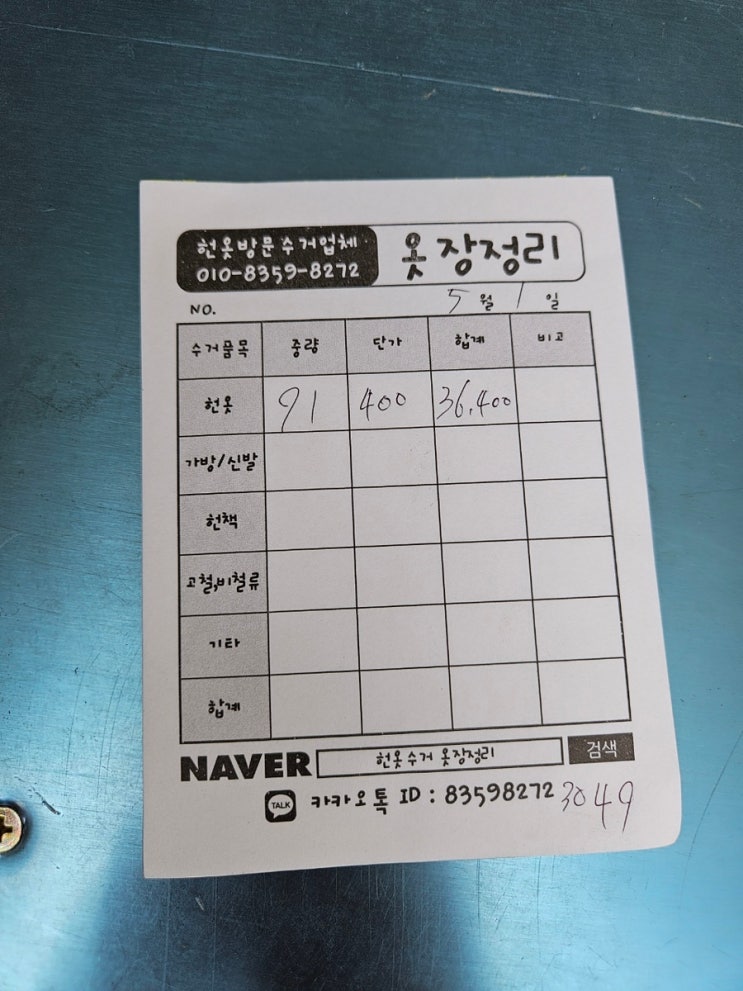 헌옷방문수거업체
010-8359-8272
옷장정리
NO.
5월 1일
수거품목 중량 단가 합계 비고
헌옷 91 400 36,400
가방/신발
헌책
고철,비철류
기타
합계
NAVER 헌옷수거 옷장정리 검색
TALK 카카오톡 ID : 83598272 3049